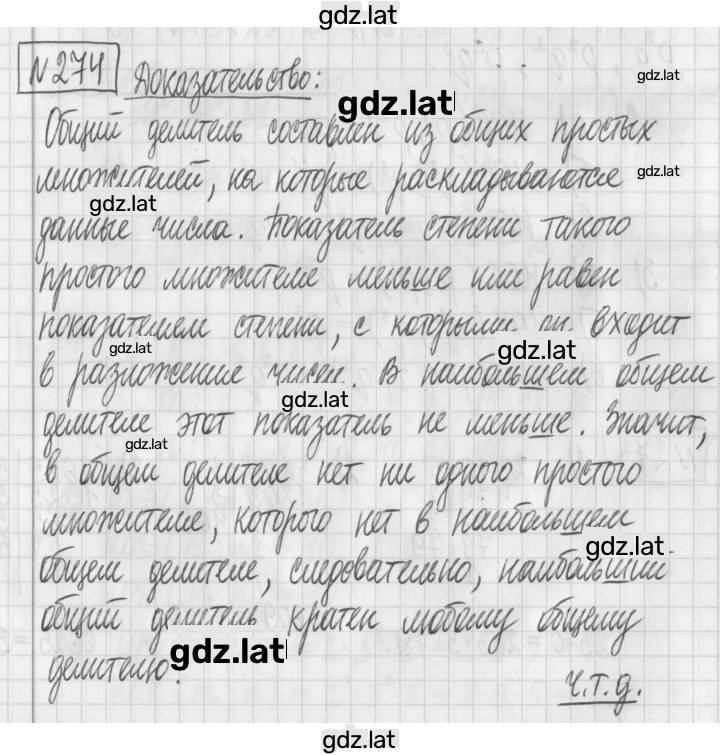 gdz.lat
№274 Доказательство:
gdz.lat
gdz.lat
Общий делитель составлен из общих простых
множителей, на которые раскладываются
gdz.lat
gdz.lat
данные числа. Показатель степени такого
простого множителя меньше или равен
показателям степени, с которыми он входит
gdz.lat
gdz.lat
в разложение чисел. В наибольшем общем
gdz.lat
делителе этот показатель не меньше. Значит,
gdz.lat
в общем делителе нет ни одного простого
множителя, которого нет в наибольшем
gdz.lat
общем делителе, следовательно, наибольший
общий делитель кратен любому общему
gdz.lat
делителю.
ч.т.д.
gdz.lat